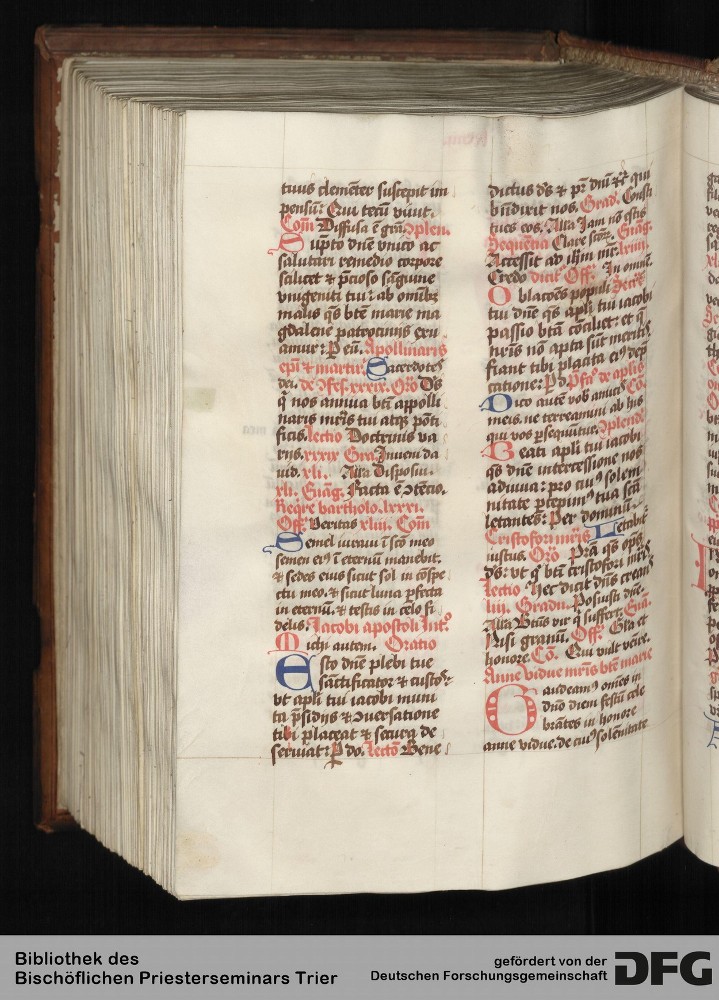 tuus clemēter suscepit im
pensū: Qui tecū viuit.
Com̄ Diffusa ē grā. ꝯplen.
Sūpto dn̄e vnico ac
salutari remedio corpore
salicet et p̄cioso sāguine
vnigeniti tui: ab omībꝫ
malis qs̄ btē marie ma
gdalene patrocinijs eru
amur: P eū. Apollinaris
epī et martir̄. Sacerdotes
dei. de Ifcs. xxxix. Orō Ds̄
q̄ nos annua bti appolli
naris mr̄is tui atqꝫ pōti
ficis. lectio Doctrinis va
rijs. xxxix Gra. Inueni da
uid. xli. Alla Disposui.
xli. Euāg. Facta ē ꝯtēcio.
Reqr̄e bartholo. lxxxi.
Off. Veritas xliiii. Com̄
Semel iuraui ī scō meo
semen eiꝰ ī eternū manebit.
et sedes eius sicut sol in cōspe
ctu meo. et sicut luna p̄fecta
in eternū. et testis in celo fi
delis: Jacobi apostoli Intꝰ.
Michi autem. Oratio
Esto dn̄e plebi tue
sāctificator et custos:
vt apl̄i tui iacobi muni
ta p̄sidijs et ꝯuersatione
tibi placeat et secura de
seruiat: P do. lectō Bene
dictus ds̄ et pr̄ dn̄i nr̄i qui
bn̄dixit nos. Grad. Consti
tues eos. Alla Iam nō estis
Sequētia Clare sctōꝝ. Euāg.
Accessit ad ihm̄ mr̄. lxiiii.
Credo dicit Off. In omnē.
Oblacōes populi Secre.
tui dn̄e qs̄ apl̄i tui iacobi
passio btā cōciliet: et q̄
nr̄is nō apta sūt meritis
fiant tibi placita eiꝰ dep̄
catione: P do Pfaꝰ de aplis
Dico autē vob amicis Cō.
meis. ne terreamini ab his
qui vos ꝑsequūtur. ꝯplend
Beati apl̄i tui iacobi
qs̄ dn̄e intercessione nos
adiuua: pro cuiꝰ solem
nitate ꝑcepimꝰ tua sctā
letantes: Per dominū.
Cristofori mr̄is Letabit̄
iustus. Orō. Prā qs̄ op̄s
ds̄: vt q̄ btī cristofori mr̄is
lectio Hec dicit dn̄s creans
liii. Gradu. Posuisti dn̄e.
Alla Btūs vir q̄ suffert. Euā.
Nisi granū. Off. Gla et
honore Cō. Qui vult venire.
Anne vidue mr̄is btē marie
Gaudeamꝰ omēs in
dn̄o diem festū cele
brātes in honore
anne vidue. de cuiꝰ solēnitate
Bibliothek des
Bischöflichen Priesterseminars Trier
gefördert von der
Deutschen Forschungsgemeinschaft
DFG